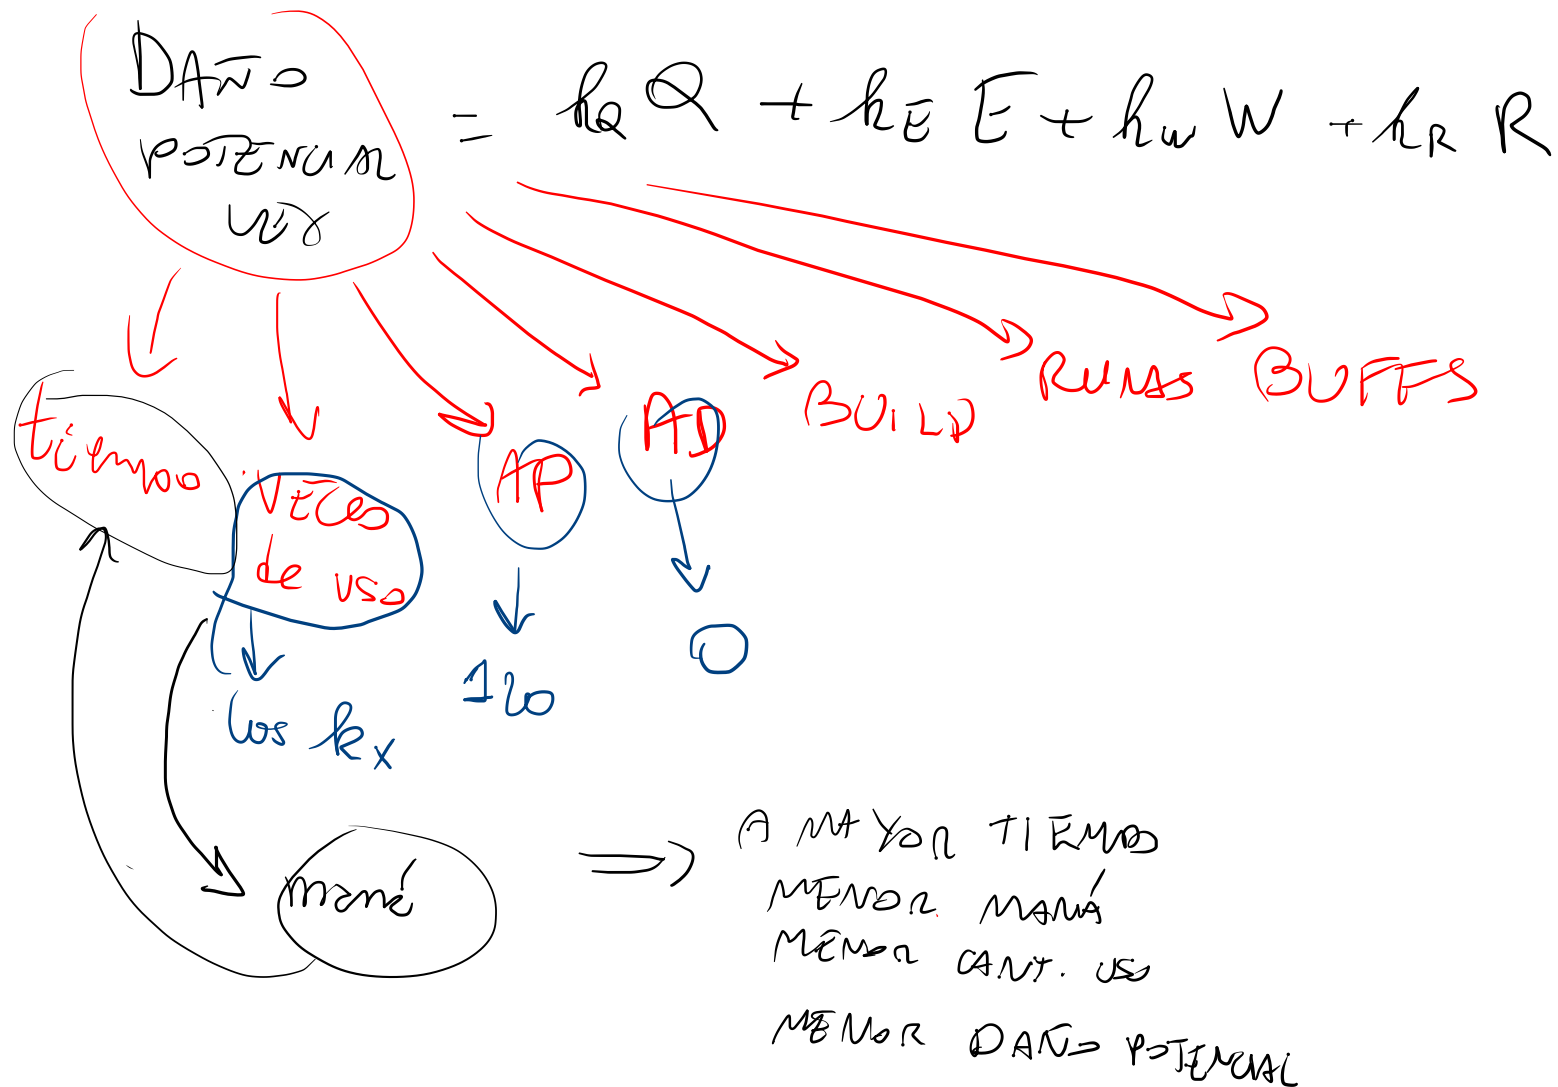 DAÑO
POTENCIAL
= kQ Q + kE E + kW W + kR R
tiempo
VECES
de uso
AP
AD
BUILD
RUNAS
BUFFS
120
0
los kx
maná
⇒ A MAYOR TIEMPO
MENOR MANÁ
MENOR CANT. USO
MENOR DAÑO POTENCIAL